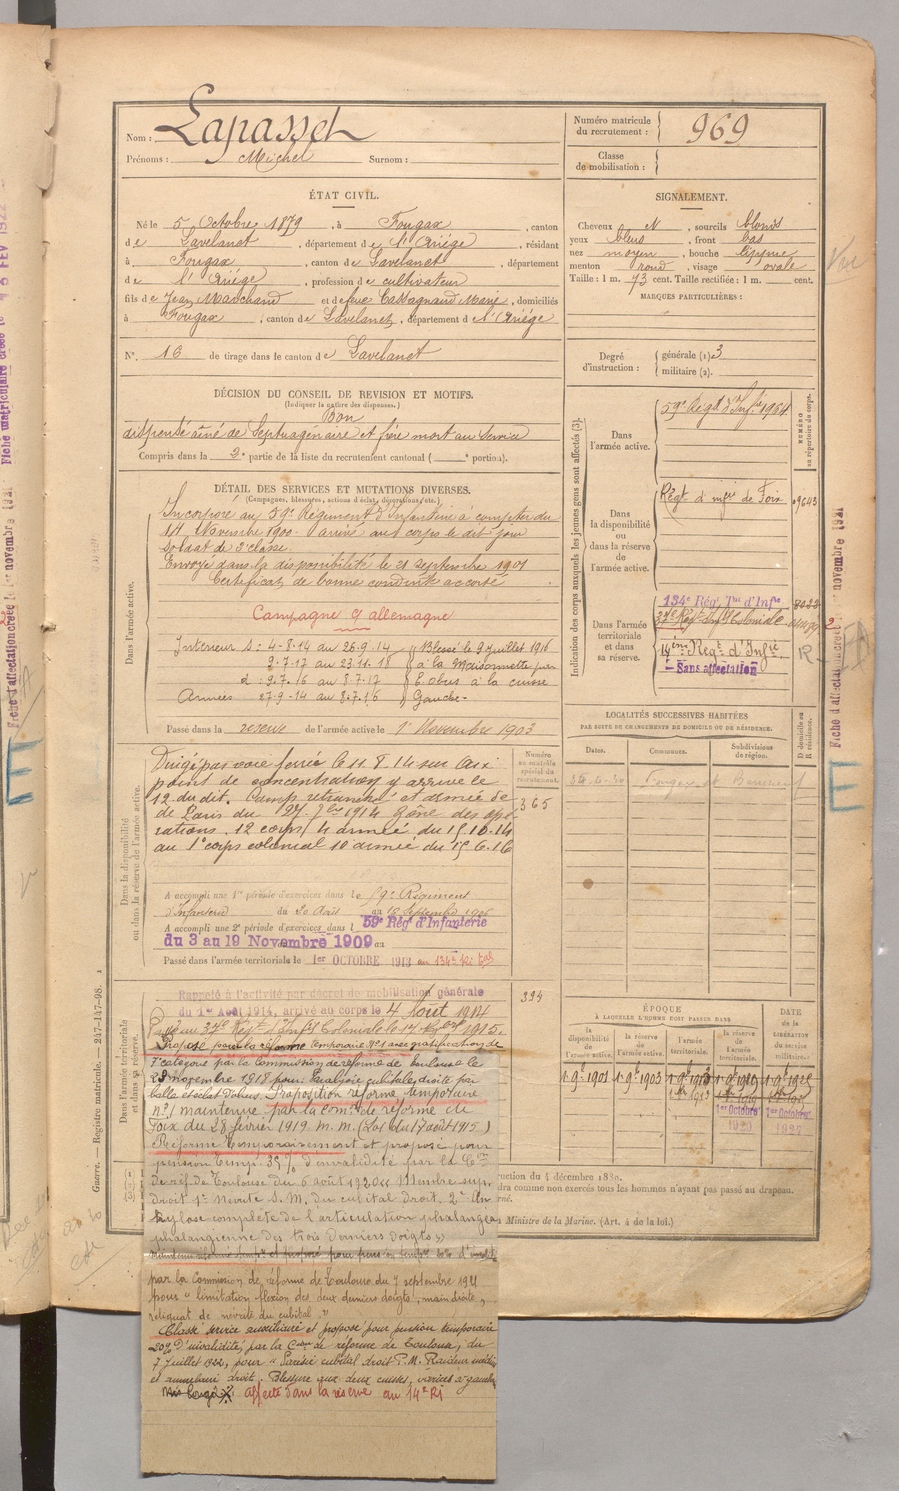 Nom : Lapasset
Prénoms : Michel Surnom :
Numéro matricule du recrutement : 969
Classe de mobilisation :
ÉTAT CIVIL.
Né le 5 Octobre 1879, à Fougax, canton
de Lavelanet, département de l'Ariége, résidant
à Fougax, canton de Lavelanet, département
de l'Ariége, profession de cultivateur
fils de Jean Marchand et de feue Cassagnaud Marie, domiciliés
à Fougax, canton de Lavelanet, département de l'Ariége
N° 16 de tirage dans le canton de Lavelanet
SIGNALEMENT.
Cheveux N, sourcils blonds
yeux bleus, front bas
nez moyen, bouche
menton rond, visage ovale
Taille : 1 m. 73 cent. Taille rectifiée : 1 m. cent.
MARQUES PARTICULIÈRES :
Degré d'instruction : générale (1) 3
militaire (2).
DÉCISION DU CONSEIL DE REVISION ET MOTIFS.
(Indiquer la nature des dispenses.)
Bon
dispensé aîné de Septuagénaire et frère mort au Service
Compris dans la 2e partie de la liste du recrutement cantonal ( e portion).
DÉTAIL DES SERVICES ET MUTATIONS DIVERSES.
(Campagnes, blessures, actions d'éclat, décorations, etc.)
Dans l'armée active.
Incorporé au 59e Régiment d'Infanterie à compter du
14 Novembre 1900. arrivé au corps le dit jour
Soldat de 2e classe.
Envoyé dans la disponibilité le 21 Septembre 1901
Certificat de bonne conduite accordé
Campagne c/ allemagne
Interieur S : 4-8-14 au 26-9-14 Blessé le 2 juillet 1916
9-7-17 au 23-11-18 à la Maisonnette par
d : 9-7-16 au 8-7-17 E. obus à la cuisse
Armées 27-9-14 au 8-7-16 Gauche-
Passé dans la reserve de l'armée active le 1er Novembre 1903
Indication des corps auxquels les jeunes gens sont affectés (3).
NUMÉRO au répertoire du corps.
Dans l'armée active.
59e Régt d'Infrie 1964
Dans la disponibilité ou dans la réserve de l'armée active.
Régt d'infie de Foix 9643
Dans l'armée territoriale et dans sa réserve.
134e Rég. Tal d'Infie 8022
37e Régt Inft Coloniale
14ème Régt d'Infie
- Sans affectation
LOCALITÉS SUCCESSIVES HABITÉES
PAR SUITE DE CHANGEMENTS DE DOMICILE OU DE RÉSIDENCE.
Dates. Communes. Subdivisions de région. D domicile ou R résidence.
Dans la disponibilité ou dans la réserve de l'armée active.
Numéro au contrôle spécial du recrutement.
365
Dirigé par voie ferrée le 11.8.14 sur Aix
point de concentration y arrive le
12 du dit. Camp retranché et armée de
de Paris du 27. 7bre 1914 Zône des opé-
rations. 12 corps/4 armée du 15 10-14
au 1er corps colonial 10 armée du 15 6-16
A accompli une 1re période d'exercices dans le 59e Régiment
d'Infanterie du 20 Août au 16 Septembre 1906
A accompli une 2e période d'exercices dans l 59e Rég. d'Infanterie
du 3 au 19 Novembre 1909 au
Passé dans l'armée territoriale le 1er OCTOBRE 1913 au 134e Ri tal
Dans l'armée territoriale et dans sa réserve.
394
Rappelé à l'activité par décret de mobilisation générale
du 1er Août 1914, arrivé au corps le 4 Août 1914
Passé au 37e Régt d'Inft Coloniale le 17 1915.
Proposé pour la réforme temporaire n°1 avec gratification de
7e catégorie par la Commission de réforme de Toulouse le
23 novembre 1918 pour: Paralysie cubitale droite par
balle et éclat d'obus. Proposition réforme temporaire
n°1 maintenue par la Com. de réforme de
Foix du 28 février 1919. M. M. (Loi du 17 août 1915)
Réformé temporairement et proposé pour
pension temp. 35 % d'invalidité par la Cion
de réf. de Toulouse du 6 août 1920 « Membre sup.
droit 1° Nevrite S. M. du cubital droit. 2° An
kylose complète de l'articulation phalango
phalangienne des trois derniers doigts »
Maintenu réformé tempre et proposé pour pension tempre
par la Commission de réforme de Toulouse du 7 septembre 1921
pour « limitation flexion des deux derniers doigts, main droite,
reliquat de névrite du cubital. »
Classé service auxiliaire et proposé pour pension temporaire
20% d'invalidité, par la Cion de réforme de Toulouse, du
7 juillet 1922, pour « Parésie cubital droit P. M. Raideur médius
et annulaire droit. Blessure aux deux cuisses, varices à gauche
affecté dans la réserve au 14e RI
ÉPOQUE
À LAQUELLE L'HOMME DOIT PASSER DANS
la disponibilité de l'armée active. la réserve de l'armée active. l'armée territoriale. la réserve de l'armée territoriale. DATE de la LIBÉRATION du service militaire.
1. 9e 1901 1. 9e 1903 1. 9e 1913
1er Octobre 1920
1er Octobre 1927
ruction du 4 décembre 1880.
dra comme non exercés tous les hommes n'ayant pas passé au drapeau.
Ministre de la Marine. (Art. 4 de la loi.)
Guerre. — Registre matricule. — 247-147-98.
Fiche d'affectation créée le 1er novembre 1921
Fiche matriculaire créée le
E
E